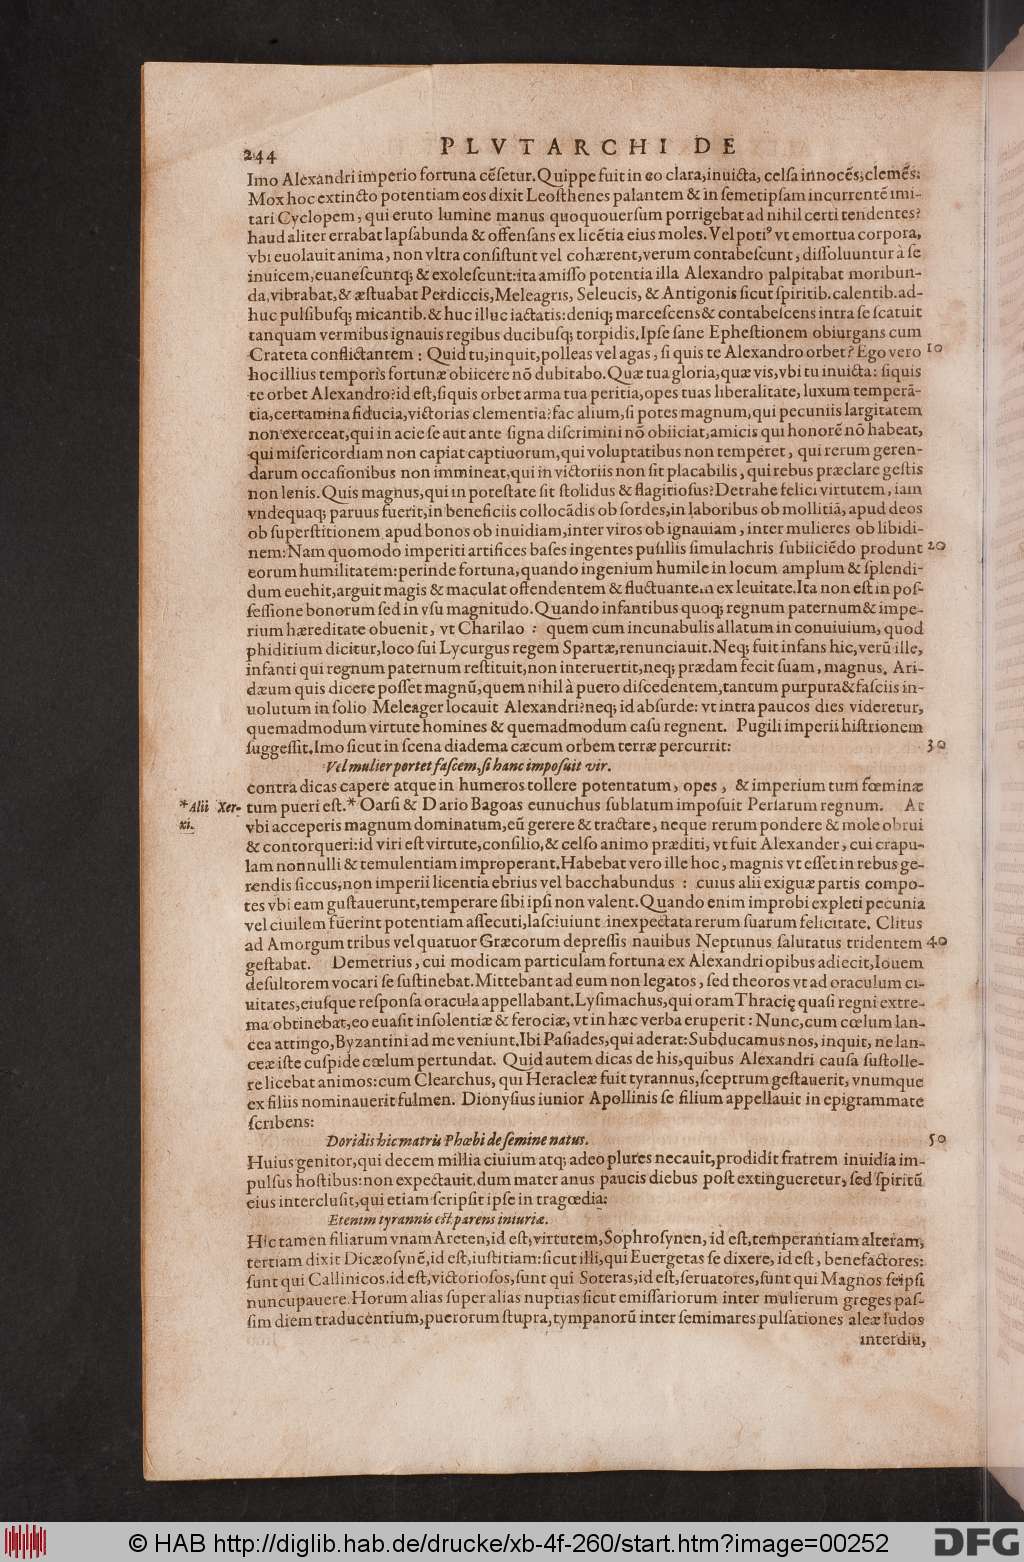 244
PLVTARCHI DE
Imo Alexandri imperio fortuna cēſetur. Quippe fuit in eo clara, inuicta, celſa innocēs; clemēs:
Mox hoc extincto potentiam eos dixit Leoſthenes palantem & in ſemetipſam incurrentē imi-
tari Cyclopem, qui eruto lumine manus quoquouerſum porrigebat ad nihil certi tendentes?
haud aliter errabat lapſabunda & offenſans ex licētia eius moles. Vel potiꝰ vt emortua corpora,
vbi euolauit anima, non vltra conſiſtunt vel cohærent, verum contabeſcunt, diſſoluuntur à ſe
inuicem, euaneſcuntq; & exoleſcunt: ita amiſſo potentia illa Alexandro palpitabat moribun-
da, vibrabat, & æſtuabat Perdiccis, Meleagris, Seleucis, & Antigonis ſicut ſpiritib. calentib. ad-
huc pulſibuſq; micantib. & huc illuc iactatis: deniq; marceſcens & contabeſcens intra ſe ſcatuit
tanquam vermibus ignauis regibus ducibuſq; torpidis. Ipſe ſane Epheſtionem obiurgans cum
Crateta conflictantem : Quid tu, inquit, polleas vel agas, ſi quis te Alexandro orbet? Ego vero 10
hoc illius temporis fortunæ obiicere nō dubitabo. Quæ tua gloria, quæ vis, vbi tu inuicta: ſi quis
te orbet Alexandro? id eſt, ſi quis orbet arma tua peritia, opes tuas liberalitate, luxum temperā-
tia, certamina fiducia, victorias clementia? fac alium, ſi potes magnum, qui pecuniis largitatem
non exerceat, qui in acie ſe aut ante ſigna diſcrimini nō obiiciat, amicis qui honorē nō habeat,
qui miſericordiam non capiat captiuorum, qui voluptatibus non temperet, qui rerum geren-
darum occaſionibus non immineat, qui in victoriis non ſit placabilis, qui rebus præclare geſtis
non lenis. Quis magnus, qui in poteſtate ſit ſtolidus & flagitioſus? Detrahe felici virtutem, iam
vndequaq; paruus fuerit, in beneficiis collocādis ob ſordes, in laboribus ob mollitiā, apud deos
ob ſuperſtitionem apud bonos ob inuidiam, inter viros ob ignauiam, inter mulieres ob libidi-
nem: Nam quomodo imperiti artifices baſes ingentes puſillis ſimulachris ſubiiciēdo produnt 20
eorum humilitatem: perinde fortuna, quando ingenium humile in locum amplum & ſplendi-
dum euehit, arguit magis & maculat offendentem & fluctuantem ex leuitate. Ita non eſt in poſ-
ſeſſione bonorum ſed in vſu magnitudo. Quando infantibus quoq; regnum paternum & impe-
rium hæreditate obuenit, vt Charilao : quem cum incunabulis allatum in conuiuium, quod
phiditium dicitur, loco ſui Lycurgus regem Spartæ, renunciauit. Neq; fuit infans hic, verū ille,
infanti qui regnum paternum reſtituit, non interuertit, neq; prædam fecit ſuam, magnus. Ari-
dæum quis dicere poſſet magnū, quem nihil à puero diſcedentem, tantum purpura & faſciis in-
uolutum in ſolio Meleager locauit Alexandri? neq; id abſurde: vt intra paucos dies videretur,
quemadmodum virtute homines & quemadmodum caſu regnent. Pugili imperii hiſtrionem
ſuggeſſit. Imo ſicut in ſcena diadema cæcum orbem terræ percurrit: 30
Vel mulier portet faſcem, ſi hanc impoſuit vir.
contra dicas capere atque in humeros tollere potentatum, opes, & imperium tum fœminæ
tum pueri eſt.* Oarſi & Dario Bagoas eunuchus ſublatum impoſuit Perſarum regnum. At
*Alii Xer-
xi.
vbi acceperis magnum dominatum, eū gerere & tractare, neque rerum pondere & mole obrui
& contorqueri: id viri eſt virtute, conſilio, & celſo animo præditi, vt fuit Alexander, cui crapu-
lam nonnulli & temulentiam improperant. Habebat vero ille hoc, magnis vt eſſet in rebus ge-
rendis ſiccus, non imperii licentia ebrius vel bacchabundus : cuius alii exiguæ partis compo-
tes vbi eam guſtauerunt, temperare ſibi ipſi non valent. Quando enim improbi expleti pecunia
vel ciuilem fuerint potentiam aſſecuti, laſciuiunt inexpectata rerum ſuarum felicitate. Clitus
ad Amorgum tribus vel quatuor Græcorum depreſſis nauibus Neptunus ſalutatus tridentem 40
geſtabat. Demetrius, cui modicam particulam fortuna ex Alexandri opibus adiecit, Iouem
deſultorem vocari ſe ſuſtinebat. Mittebant ad eum non legatos, ſed theoros vt ad oraculum ci-
uitates, eiuſque reſponſa oracula appellabant. Lyſimachus, qui oram Thracię quaſi regni extre-
ma obtinebat, eo euaſit inſolentiæ & ferociæ, vt in hæc verba eruperit: Nunc, cum cœlum lan-
cea attingo, Byzantini ad me veniunt. Ibi Paſiades, qui aderat: Subducamus nos, inquit, ne lan-
ceæ iſte cuſpide cœlum pertundat. Quid autem dicas de his, quibus Alexandri cauſa ſuſtolle-
re licebat animos: cum Clearchus, qui Heracleæ fuit tyrannus, ſceptrum geſtauerit, vnumque
ex filiis nominauerit fulmen. Dionyſius iunior Apollinis ſe filium appellauit in epigrammate
ſcribens:
Doridis hic matris Phœbi de ſemine natus. 50
Huius genitor, qui decem millia ciuium atq; adeo plures necauit, prodidit fratrem inuidia im-
pulſus hoſtibus: non expectauit, dum mater anus paucis diebus poſt extingueretur, ſed ſpiritū
eius intercluſit, qui etiam ſcripſit ipſe in tragœdia:
Etenim tyrannis eſt parens iniuriæ.
Hic tamen filiarum vnam Areten, id eſt, virtutem, Sophroſynen, id eſt, temperantiam alteram,
tertiam dixit Dicæoſynē, id eſt, iuſtitiam: ſicut illi, qui Euergetas ſe dixere, id eſt, benefactores:
ſunt qui Callinicos, id eſt, victorioſos, ſunt qui Soteras, id eſt, ſeruatores, ſunt qui Magnos ſeipſi
nuncupauere. Horum alias ſuper alias nuptias ſicut emiſſariorum inter mulierum greges paſ-
ſim diem traducentium, puerorum ſtupra, tympanorū inter ſemimares pulſationes aleæ ludos
interdiu,
© HAB http://diglib.hab.de/drucke/xb-4f-260/start.htm?image=00252
DFG